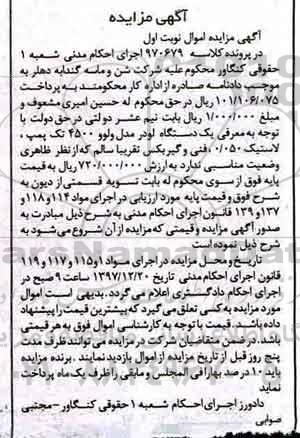 آگهی مزایده
آگهی مزایده اموال نوبت اول
در پرونده کلاسه ۹۷۰۶۷۹ اجرای احکام مدنی شعبه ۱
حقوقی کنگاور محکوم علیه شرکت شن و ماسه گندابه دهلر به
موجب دادنامه صادره از اداره کار محکومند به پرداخت
۱۰۱/۱۰۶/۰۷۵ ریال در حق محکوم له حسین امیری مشعوف و
مبلغ ۱/۰۰۰/۰۰۰ ریال بابت نیم عشر دولتی در حق دولت با
توجه به معرفی یک دستگاه لودر مدل ولوو ۴۵۰۰ تک پمپ ،
لاستیک ۰/۰۵۰، فنی و گیربکس تقریبا سالم که از نظر ظاهری
وضعیت مناسبی ندارد به ارزش ۷۲۰/۰۰۰/۰۰۰ ریال به قیمت
پایه فوق از سوی محکوم له بابت تسویه قسمتی از دیون به
شرح فوق و قیمت پایه مورد ارزیابی در اجرای مواد ۱۱۴ و ۱۱۸ و
۱۳۷ و ۱۳۹ قانون اجرای احکام مدنی به شرح ذیل مبادرت به
صدور آگهی مزایده و قیمتی که مزایده از آن شروع می شود به
شرح ذیل نموده است
تاریخ و محل مزایده در اجرای مواد ۱و۱۱۵ و ۱۱۷ و ۱۱۹
قانون اجرای احکام مدنی تاریخ ۱۳۹۷/۱۲/۲۰ ساعت ۹ صبح در
اجرای احکام دادگستری اعلام می گردد. بدیهی است اموال
مورد مزایده به کسی تعلق می گیرد که بیشترین قیمت را پیشنهاد
داده باشد. قیمت با توجه به کارشناسی اموال فوق به هر قیمتی
باشد. در ضمن متقاضیان شرکت در مزایده می توانند ظرف مدت
پنج روز قبل از تاریخ مزایده از اموال بازدید نمایند . برنده مزایده
باید ۱۰ در صد بها را فی المجلس و مابقی را ظرف یک ماه پرداخت
نماید
دادورز اجرای احکام شعبه ۱ حقوقی کنگاور - مجتبی
صوابی